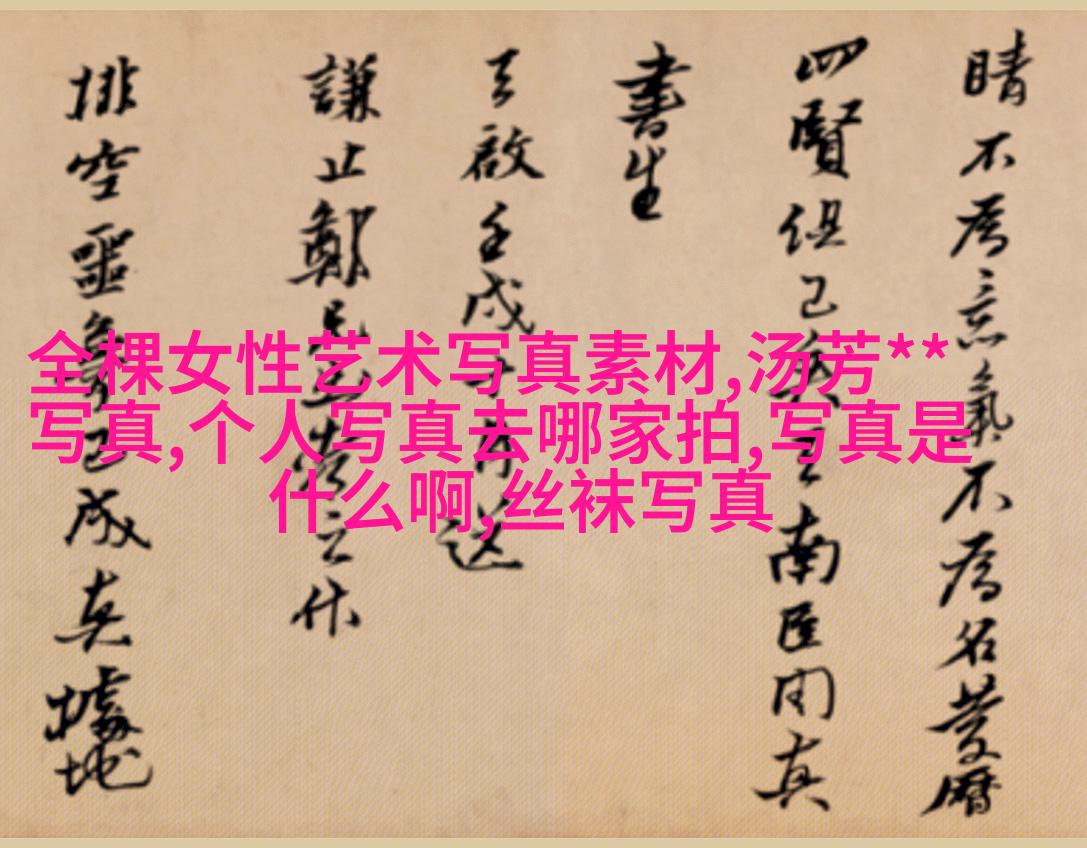 全棵女性艺术写真素材,汤芳**
写真,个人写真去哪家拍,写真是
什么啊,丝袜写真
晴不為意氣不為名
四賢俱已南臣閑真
書生
天啟壬戌十月送
謙止鄭什
排空噩已成真據地